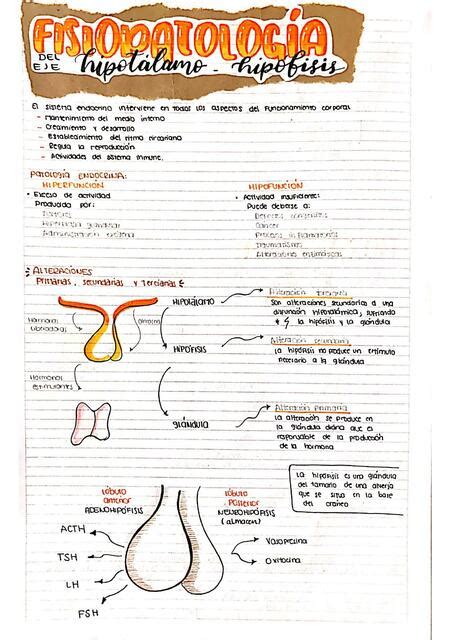 FISIOPATOLOGÍA
DEL EJE hipotálamo - hipófisis
El sistema endocrino interviene en todos los aspectos del funcionamiento corporal
- Mantenimiento del medio interno
- Crecimiento y desarrollo
- Establecimiento del ritmo circariano
- Regula la reproducción
- Actividades del sistema inmune.
PATOLOGÍA ENDOCRINA:
HIPERFUNCIÓN
• Exceso de actividad
Producida por:
Tumores
Hiperplasia glandular
Administración exógena
HIPOFUNCIÓN
• Actividad insuficiente:
Puede deberse a:
Defectos congénitos
Cáncer
Procesos inflamatorios
Traumatismos
Alteraciones enzimáticas
ALTERACIONES
Primarias, secundarias y terciarias
Hormonas
liberadoras
HIPOTÁLAMO
HIPÓFISIS
Hormonas
estimulantes
GLÁNDULA
Alteración terciaria
Son alteraciones secundarias a una
disfunción hipotalámica, sufriendo
la hipófisis y la glándula
Alteración secundaria
La hipófisis no produce un estímulo
necesario a la glándula
Alteración primaria
La alteración se produce en
la glándula diana que es
responsable de la producción
de la hormona
La hipófisis es una glándula
del tamaño de una alverja
que se situa en la base
del cráneo
lóbulo
anterior
ADENOHIPÓFISIS
lóbulo
Posterior
NEUROHIPÓFISIS
(almacen)
ACTH
TSH
LH
FSH
Vasopresina
Oxitocina